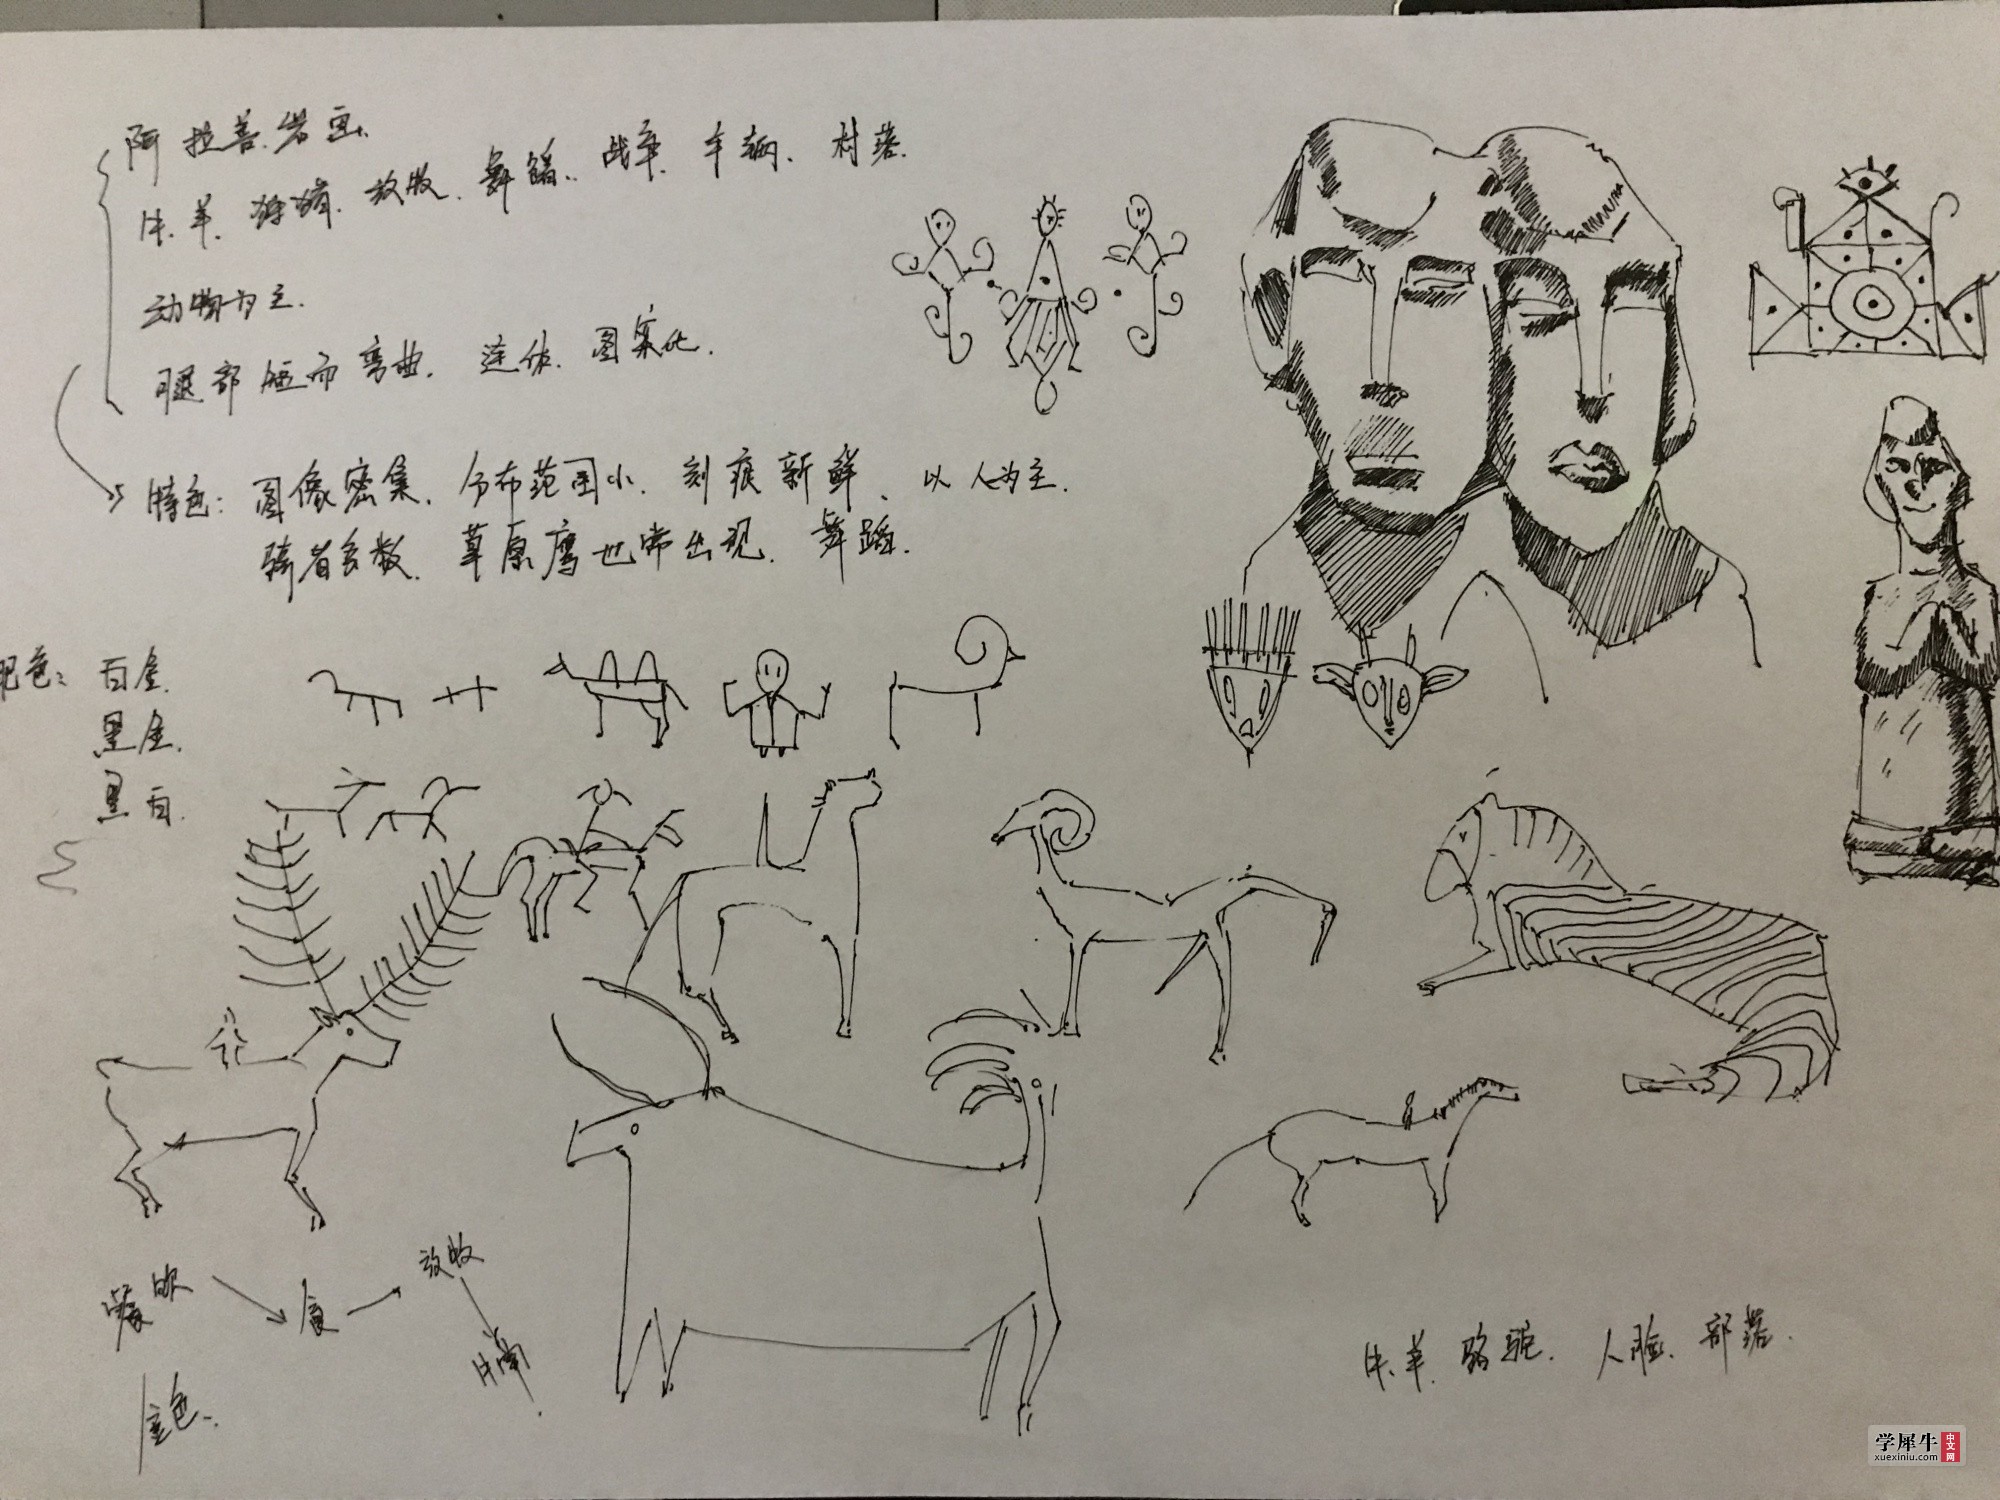 阿拉善岩画.
牛.羊.狩猎.放牧.舞蹈.战争.车辆.村落.
动物为主.
腿部短而弯曲.连体.图案化.
特色:图像密集.分布范围小.刻痕新鲜、以人为主.
骑者多数.草原鹰也常出现.舞蹈.
配色:白金.
黑金.
黑白.
放牧
金色.
牛.羊.骆驼.人脸.部落.
学犀牛
中文网
xuexiniu.com